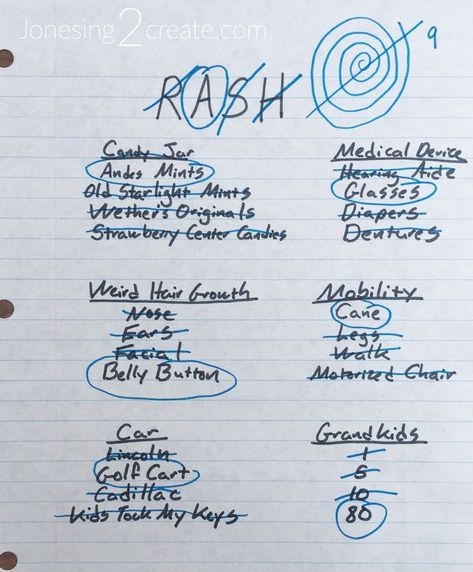 Jonesing2create.com
RASH
9
Candy Jar
Andes Mints
Old Starlight Mints
Wether's Originals
Strawberry Center Candies
Medical Device
Hearing Aide
Glasses
Diapers
Dentures
Weird Hair Growth
Nose
Ears
Facial
Belly Button
Mobility
Cane
Legs
Walk
Motorized Chair
Car
Lincoln
Golf Cart
Cadillac
Kids Took My Keys
Grandkids
1
5
10
80